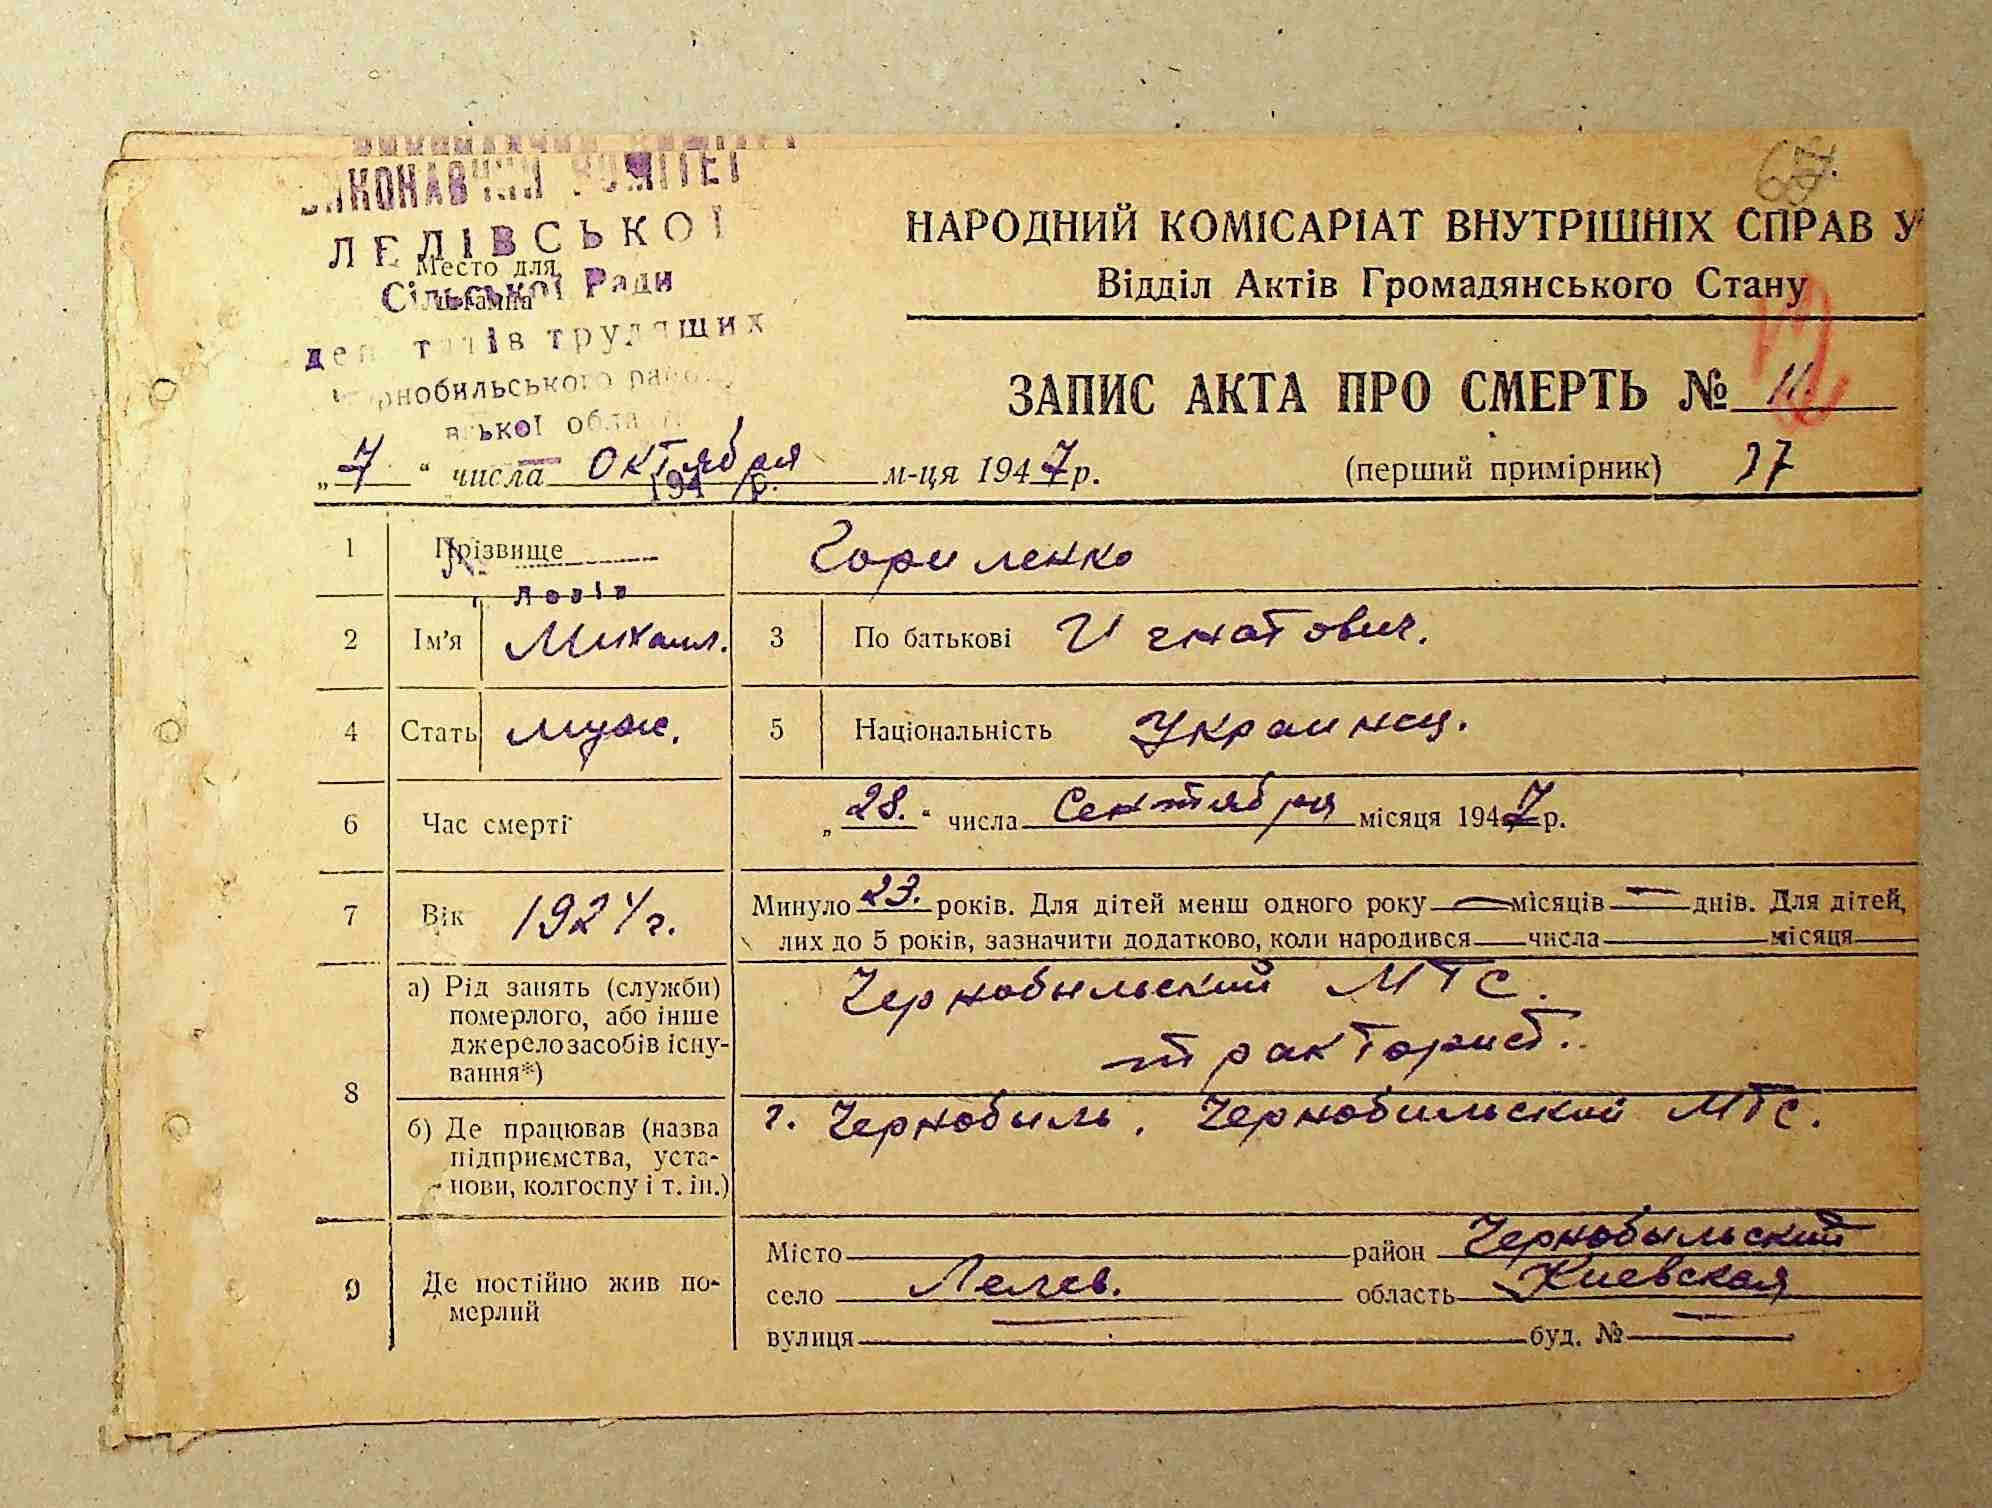 ВИКОНАВЧИЙ КОМІТЕТ
ВИКОНАВЧИЙ КОМІТЕТ
ЛЕЛІВСЬКОЇ
Место для
штампа
Сільської Ради
депутатів трудящих
Чорнобильського району
194 р.
НАРОДНИЙ КОМІСАРІАТ ВНУТРІШНІХ СПРАВ У
Відділ Актів Громадянського Стану
ЗАПИС АКТА ПРО СМЕРТЬ № 11.
„7“ числа октября м-ця 1947 р. (перший примірник) 37
1 Прізвище Гориленко
Лелів
2 Ім'я Михаил. 3 По батькові Игнатович.
4 Стать муж. 5 Національність Украинец.
6 Час смерті „28.“ числа Сентября місяця 1947 р.
7 Вік 1924 г. Минуло 23. років. Для дітей менш одного року — місяців — днів. Для дітей,
лих до 5 років, зазначити додатково, коли народився числа місяця
8 а) Рід занять (служби) померлого, або інше джерело засобів існу-вання*) Чернобыльский МТС.
тракторист.
б) Де працював (назва підприємства, уста-нови, колгоспу і т. ін.) г. Чернобыль. Чернобильский МТС.
9 Де постійно жив по-мерлий
Місто район Чернобыльский
село Лелев. область Киевская
вулиця буд. №